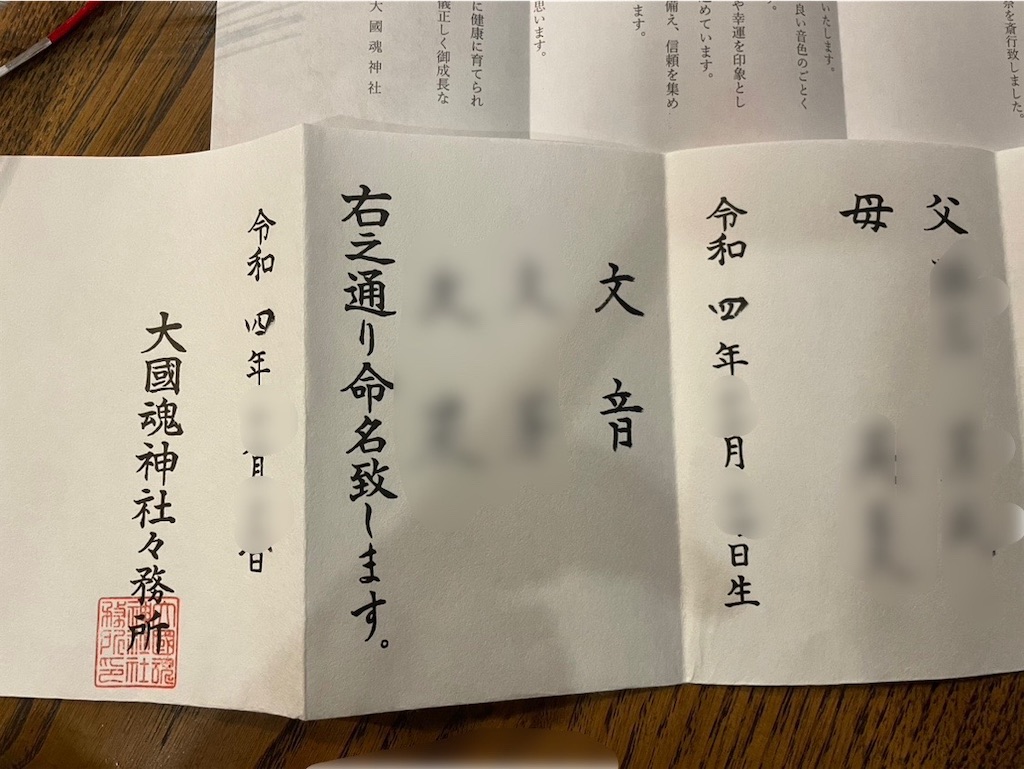 父
母
令和四年
月
日生
文音
右之通り命名致します。
令和四年
月
日
大國魂神社々務所
祭を斎行致しました。
いたします。
良い音色のごとく
す。
や幸運を印象とし
めています。
備え、信頼を集め
ます。
思います。
に健康に育てられ
儀正しく御成長な
大國魂神社